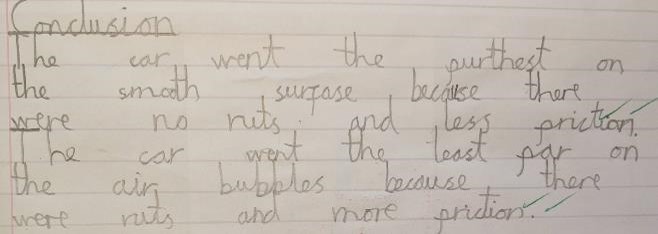 Conclusion
The car went the purthest on
the smooth surfase because there
were no ruts and less priction.
The car went the least par on
the air bubbles because there
were ruts and more priction.